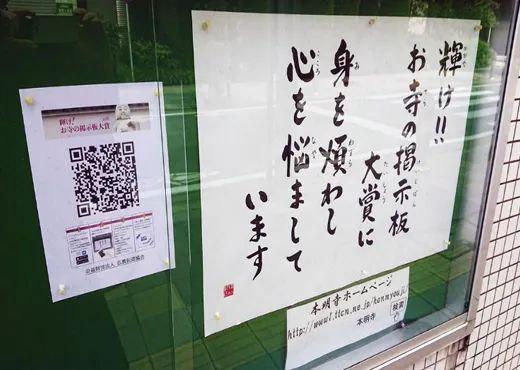 輝け!!
お寺の掲示板
大賞に
身を煩わし
心を悩まして
います
輝け!
お寺の掲示板大賞
公益財団法人 仏教伝道協会
本明寺ホームページ
本明寺
検索